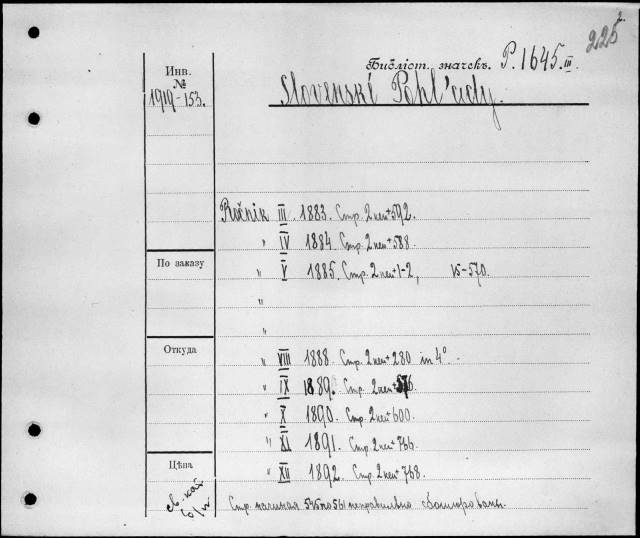 225
2.
Инв.
№
1919-153.
Библіот. значекъ. P. 1645. III.
Slovenské Pohl'ady.
Ročnik III. 1883. Стр. 2 нен + 592.
" IV 1884. Стр. 2 нен + 588.
По заказу
" V 1885. Стр. 2 нен + 1-2, 15-570.
"
"
Откуда
" VIII 1888. Стр. 2 нен + 280 in 4°.
" IX 1889. Стр. 2 нен + 576.
" X 1890. Стр. 2 нен + 600.
" XI 1891. Стр. 2 нен + 766.
Цѣна
" XII 1892. Стр. 2 нен + 768.
св. кат
б/н
Стр. начиная 545 по 561 неправильно сброшюрованы.